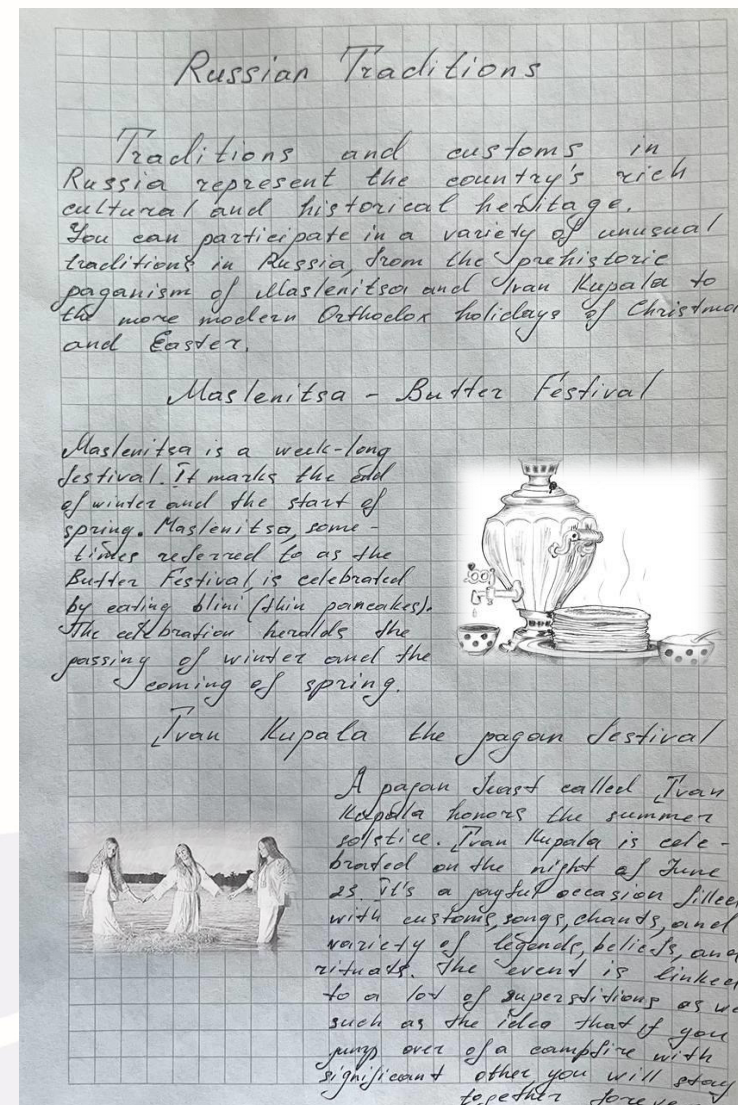 Russian Traditions
Traditions and customs in
Russia represent the country's rich
cultural and historical heritage.
You can participate in a variety of unusual
traditions in Russia, from the prehistoric
paganism of Maslenitsa and Ivan Kupala to
the more modern Orthodox holidays of Christma
and Easter.
Maslenitsa - Butter Festival
Maslenitsa is a week-long
festival. It marks the end
of winter and the start of
spring. Maslenitsa, some-
times referred to as the
Butter Festival, is celebrated
by eating blini (thin pancakes).
The celebration heralds the
passing of winter and the
coming of spring.
Ivan Kupala the pagan festival
A pagan feast called Ivan
Kupala honors the summer
solstice. Ivan Kupala is cele-
brated on the night of June
23 It's a joyful occasion filled
with customs, songs, chants, and
variety of legends, beliefs, and
rituals. The event is linked
to a lot of superstitions as we
such as the idea that if you
jump over of a campfire with
significant other you will stay
together foreve